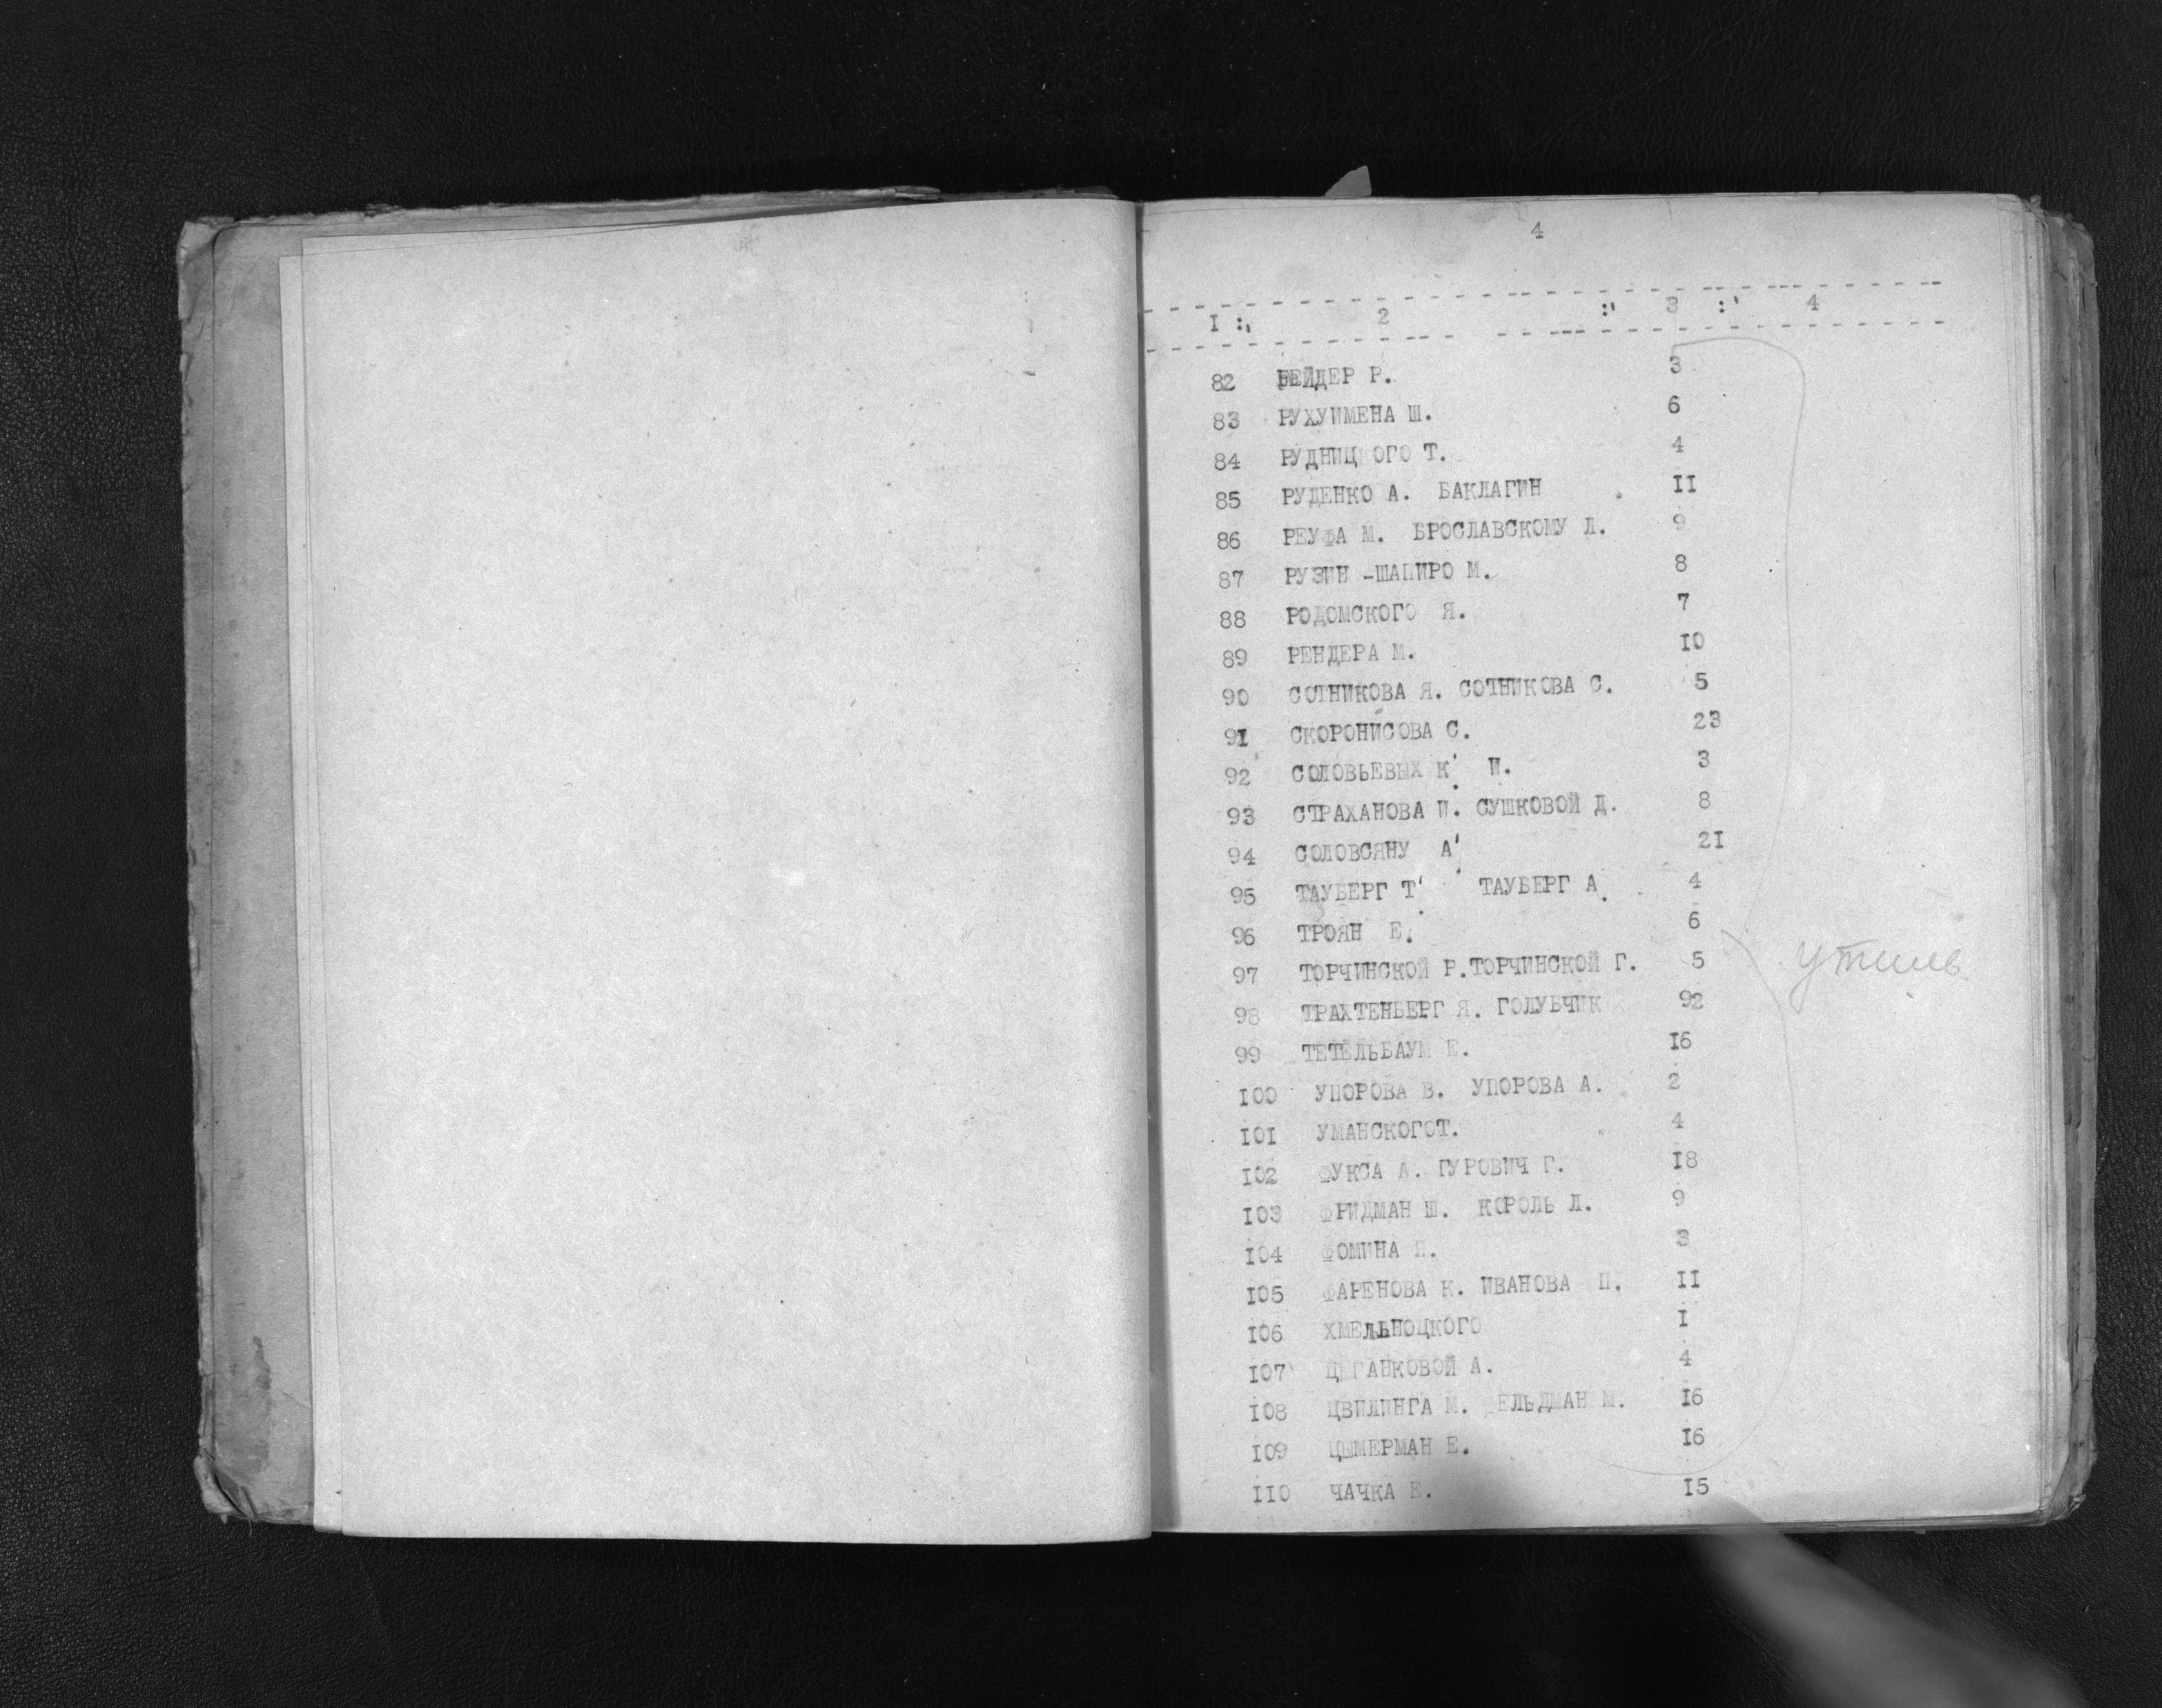 4
I :, 2 :' 3 :' 4
82 РЕЙДЕР Р. 3
83 РУХУИМЕНА Ш. 6
84 РУДНИЦ ОГО Т. 4
85 РУДЕНКО А. БАКЛАГИН . II
86 РЕУФА М. БРОСЛАВСКОМУ Л. 9
87 РУЗИН -ШАПИРО М. 8
88 РОДОМСКОГО Я. 7
89 РЕНДЕРА М. I0
90 СОТНИКОВА Я. СОТНИКОВА С. 5
9I СКОРОНИСОВА С. 23
92 СОЛОВЬЕВЫХ К' И. 3
93 СТРАХАНОВА И. СУШКОВОЙ Д. 8
94 СОЛОВСЯНУ А' 2I
95 ТАУБЕРГ Т' ТАУБЕРГ А. 4
96 ТРОЯН Е. 6
97 ТОРЧИНСКОЙ Р.ТОРЧИНСКОЙ Г. 5
утиль
98 ТРАХТЕНБЕРГ Я. ГОЛУБЧИК 92
99 ТЕТЕЛЬБАУМ Е. I6
I00 УПОРОВА В. УПОРОВА А. 2
I0I УМАНСКОГОТ. 4
I02 ФУКСА А. ГУРОВИЧ Г. I8
I03 ФРИДМАН Ш. КОРОЛЬ Л. 9
I04 ФОМИНА 3
I05 ФАРЕНОВА К. ИВАНОВА П. II
I06 ХМЕЛЬНОЦКОГО I
I07 ЦЫГАНКОВОЙ А. 4
I08 ЦВИЛИНГА М. ЕЛЬДМАН М. I6
I09 ЦЫМЕРМАН Е. I6
II0 ЧАЧКА Е. I5